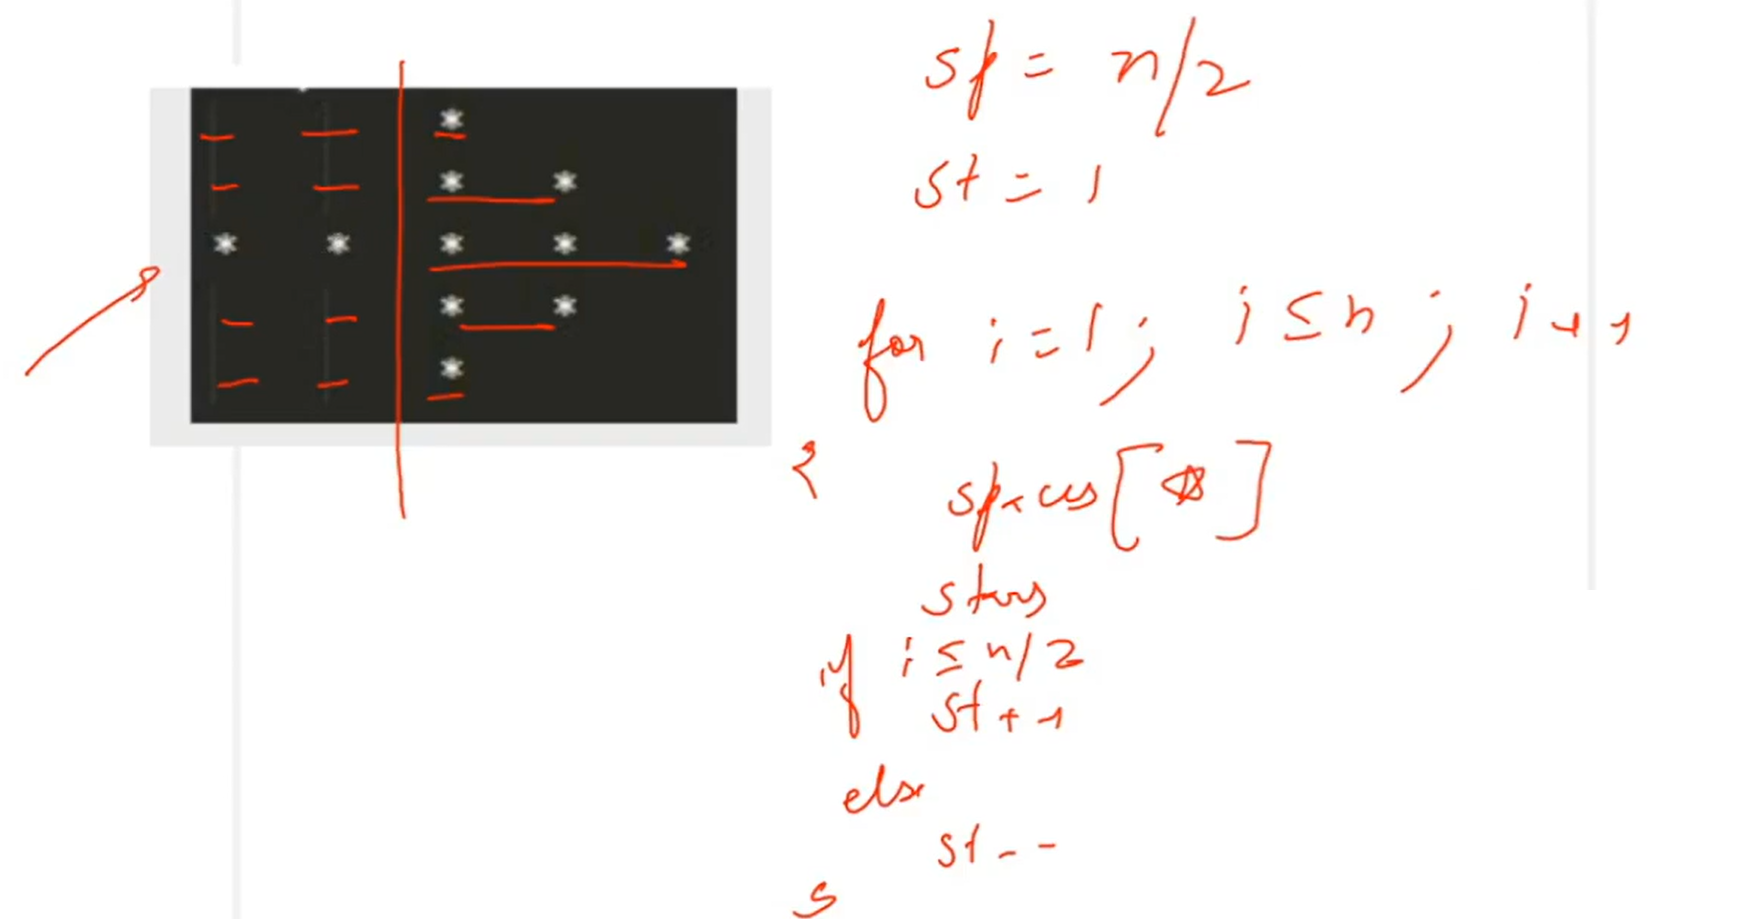 *
* *
* * * * *
* *
*
sp = n/2
st = 1
for i = 1 ; i ≤ n ; i++
{
spaces [ * ]
stars
if i ≤ n/2
st++
else
st--
}